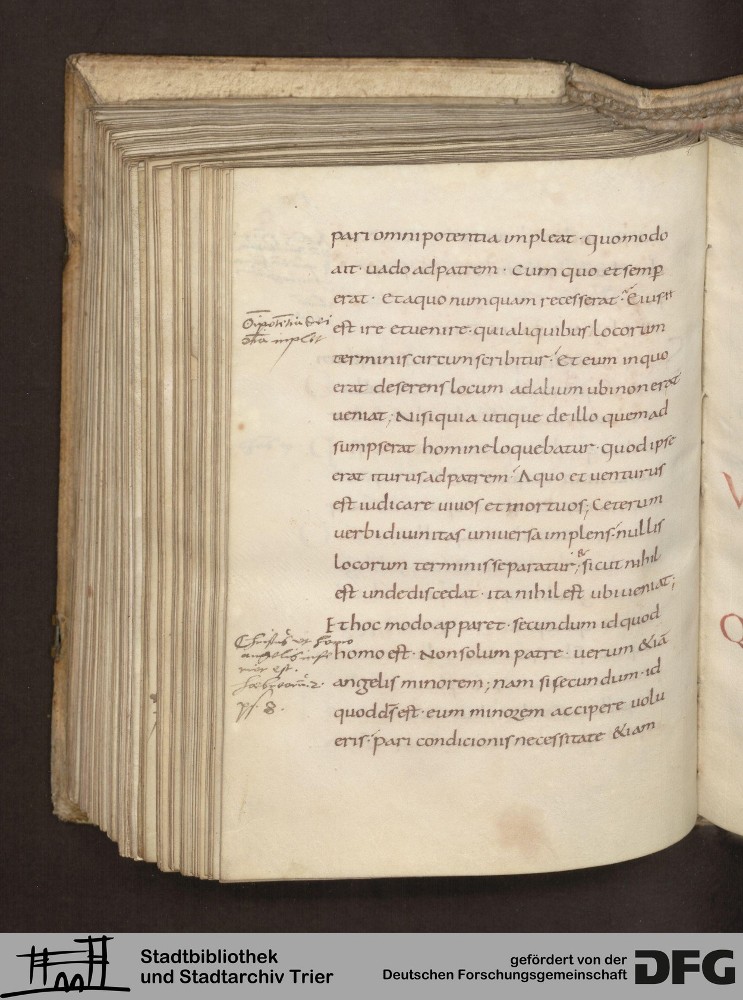 pari omnipotentia impleat · quomodo
ait · uado ad patrem · Cum quo et semp̄
erat · Et a quo numquam recesserat · Eius
Oīpotētia dei
oīa implet
est ire et uenire · qui aliquibus locorum
terminis circumscribitur · Et eum in quo
erat deserens locum ad alium ubi non erat
ueniat ; Nisi quia utique de illo quem ad
sumpserat homine loquebatur · quod ipse
erat iturus ad patrem · A quo et uenturus
est iudicare uiuos et mortuos ; Ceterum
uerbi diuinitas uniuersa implens · nullis
locorum terminis separatur ; sicut nihil
est unde discedat · ita nihil est ubi ueniat ;
Et hoc modo apparet · secundum id quod
Christus et homo
angelis infe
rior est.
Hebræorū 2.
Ps. 8.
homo est · Non solum patre · uerum &iā
angelis minorem ; nam si secundum · id
quod d̄s est · eum minorem accipere uolu
eris · pari condicionis necessitate &iam
Stadtbibliothek
und Stadtarchiv Trier
gefördert von der
Deutschen Forschungsgemeinschaft
DFG